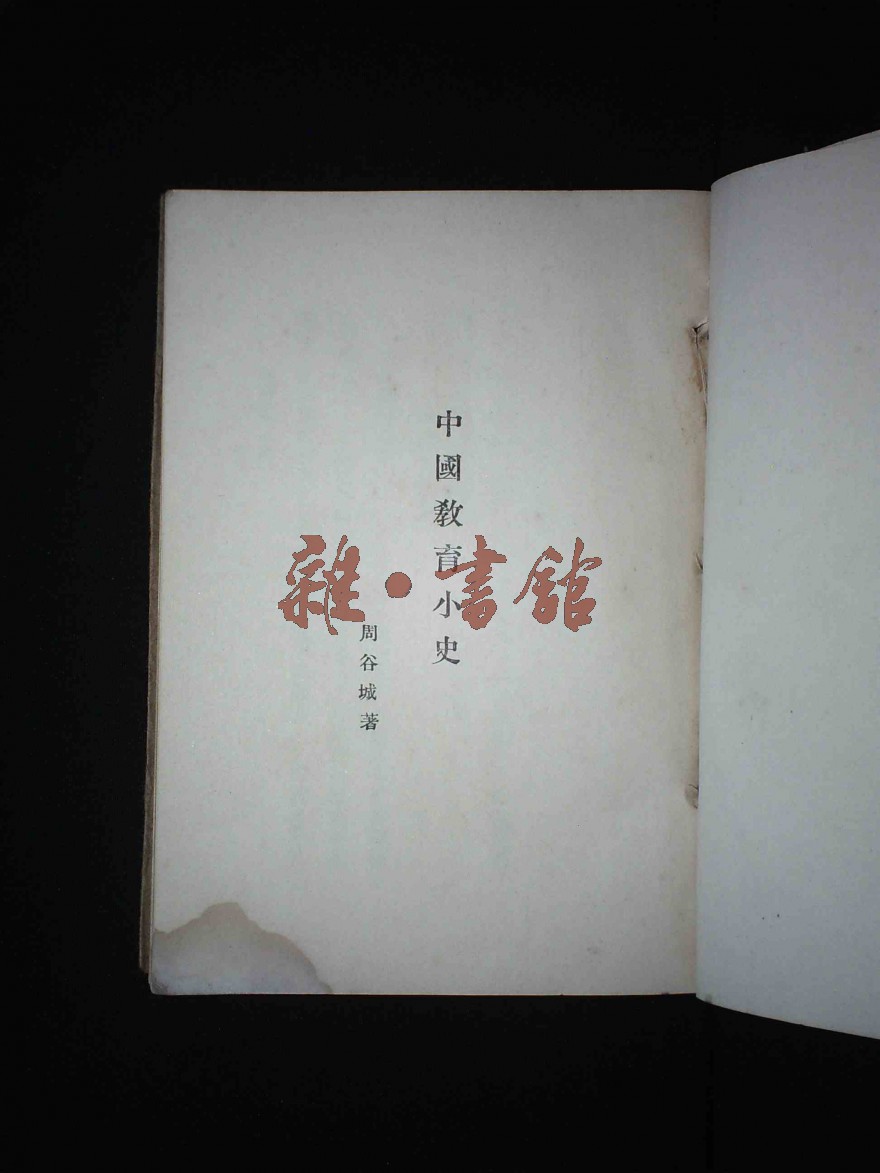 中國敎育小史
周谷城著
雜·書館